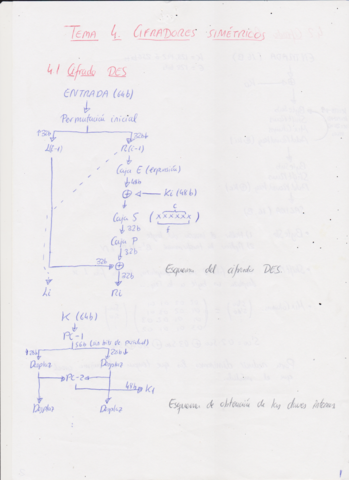 TEMA 4. CIFRADORES SIMÉTRICOS
4.1 Cifrado DES
ENTRADA (64b)
Permutación inicial
32b 32b
L(i-1) R(i-1)
Caja E (expansión)
48b
⊕ Ki (48b)
c
Caja S (xxxxxx)
f
32b
Caja P
32b
32b ⊕
32b
Li Ri
Esquema del cifrado DES.
K (64b)
PC-1
56b (sin bits de paridad)
28b 28b
Desplaz Desplaz
PC-2
48b K1
Desplaz Desplaz
Esquema de obtención de las claves internas
1